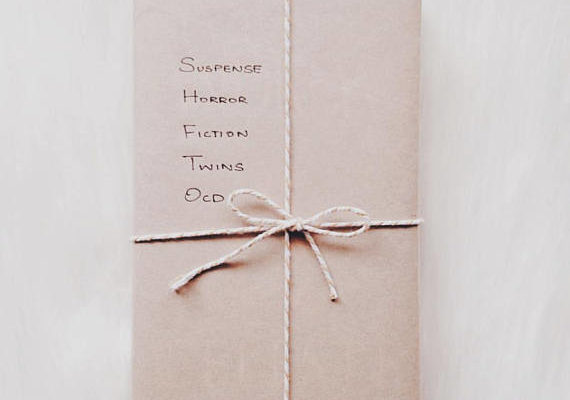 Suspense
Horror
Fiction
Twins
Ocd